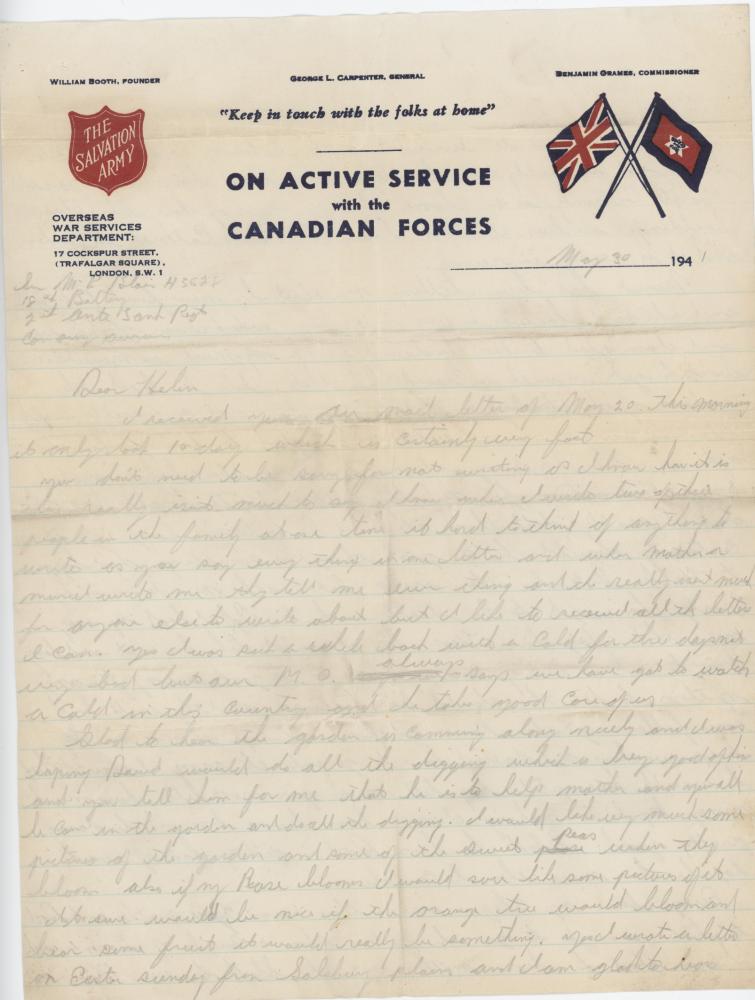 WILLIAM BOOTH, FOUNDER
GEORGE L. CARPENTER, GENERAL
BENJAMIN ORAMES, COMMISSIONER
"Keep in touch with the folks at home"
THE
SALVATION
ARMY
ON ACTIVE SERVICE
with the
CANADIAN FORCES
OVERSEAS
WAR SERVICES
DEPARTMENT:
17 COCKSPUR STREET,
(TRAFALGAR SQUARE),
LONDON. S.W. 1
May 30 1941
Battery
2nd Anti Tank Regt
Dear Helen
I received your air mail letter of May 20 this morning
it only took 10 days which is certainly very fast
you don't need to be sorry for not writing as I know how it is
really isn't much to say I know when I write two of three
people in the family at one time it hard to think of anything to
write as you say every thing in one letter and when mother or
muriel write me they tell me every thing and the really isn't much
for anyone else to write about but I like to receive all the letters
I can. yes I was sick a while back with a cold for three days not
very bad but our M.O. always says we have got to watch
a cold in this country and he takes good care of us
Glad to hear the garden is comming along nicely and I was
hoping David would do all the digging which is
and you tell him for me that he is to help mother and you all
he can in the garden and do all the digging. I would like very much some
pictures of the garden and some of the sweet peas when they
bloom also if my Rose blooms I would sure like some pictures of it
it sure would be nice if the orange tree would bloom and
bear some fruit it would really be something. yes I wrote a letter
on Easter sunday from Salsbury plains and I am glad to hear